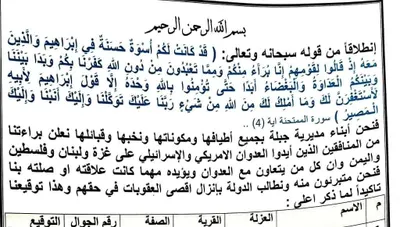 بسم الله الرحمن الرحيم
إنطلاقاً من قوله سبحانه وتعالى: ( قَدْ كَانَتْ لَكُمْ أُسْوَةٌ حَسَنَةٌ فِي إِبْرَاهِيمَ وَالَّذِينَ
مَعَهُ إِذْ قَالُوا لِقَوْمِهِمْ إِنَّا بُرَآءُ مِنْكُمْ وَمِمَّا تَعْبُدُونَ مِنْ دُونِ اللَّهِ كَفَرْنَا بِكُمْ وَبَدَا بَيْنَنَا
وَبَيْنَكُمُ الْعَدَاوَةُ وَالْبَغْضَاءُ أَبَدًا حَتَّى تُؤْمِنُوا بِاللَّهِ وَحْدَهُ إِلَّا قَوْلَ إِبْرَاهِيمَ لِأَبِيهِ
لَأَسْتَغْفِرَنَّ لَكَ وَمَا أَمْلِكُ لَكَ مِنَ اللَّهِ مِنْ شَيْءٍ رَبَّنَا عَلَيْكَ تَوَكَّلْنَا وَإِلَيْكَ أَنَبْنَا وَإِلَيْكَ
الْمَصِيرُ ) سورة الممتحنة اية (4) ..
فنحن أبناء مديرية جبلة بجميع أطيافها ومكوناتها ونخبها وقبائلها نعلن براءتنا
من المنافقين الذين أيدوا العدوان الامريكي والإسرائيلي على غزة ولبنان وفلسطين
واليمن وان كل من يتعاون مع العدوان ويؤيده مهما كانت علاقته او صلته بنا
فنحن متبرئون منه ونطالب الدولة بإنزال اقصى العقوبات في حقهم وهذا توقيعنا
تأكيداً لما ذكر اعلى :
م الاسم العزلة القرية الصفة رقم الجوال التوقيع